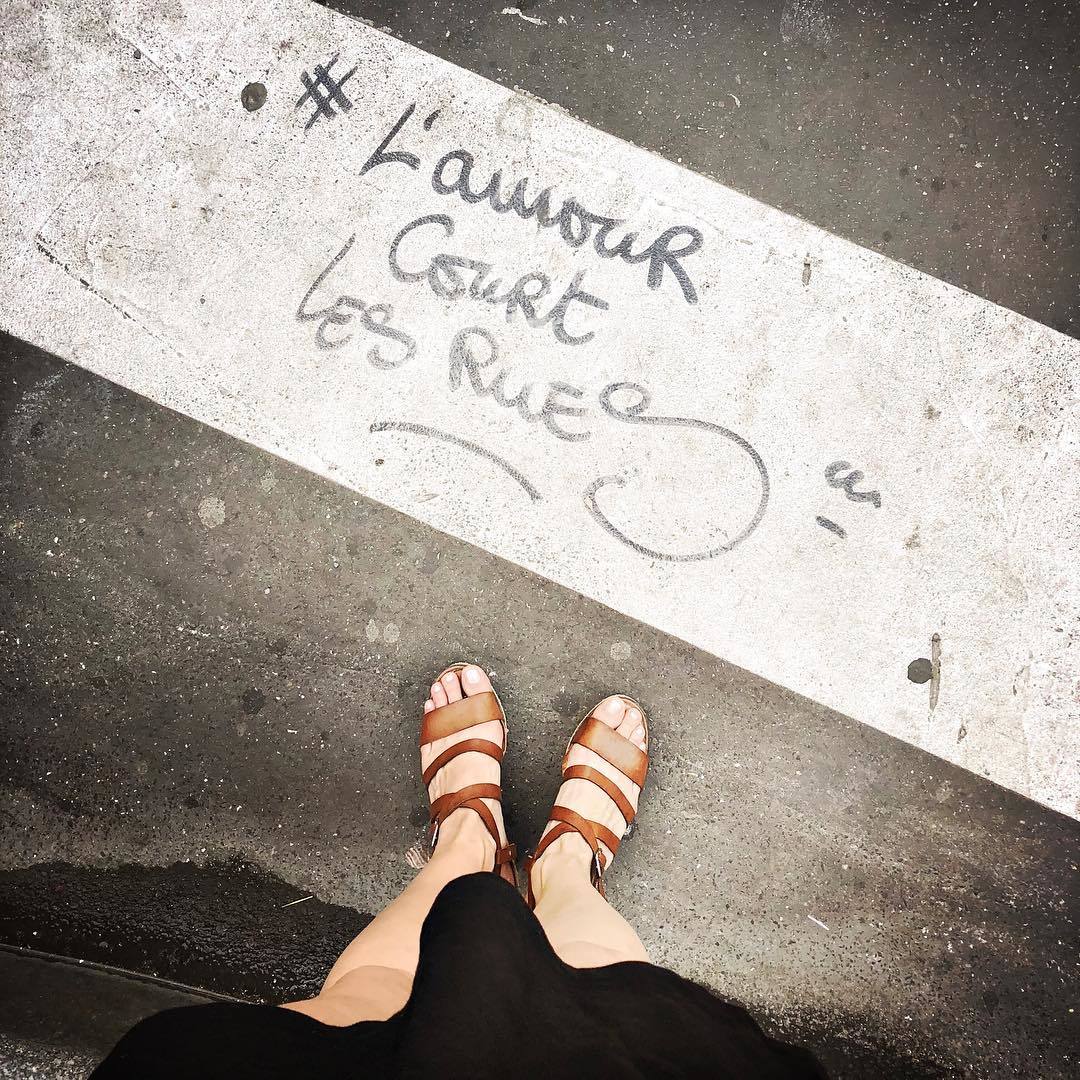 # L'amouR
CouRt
LES RuES